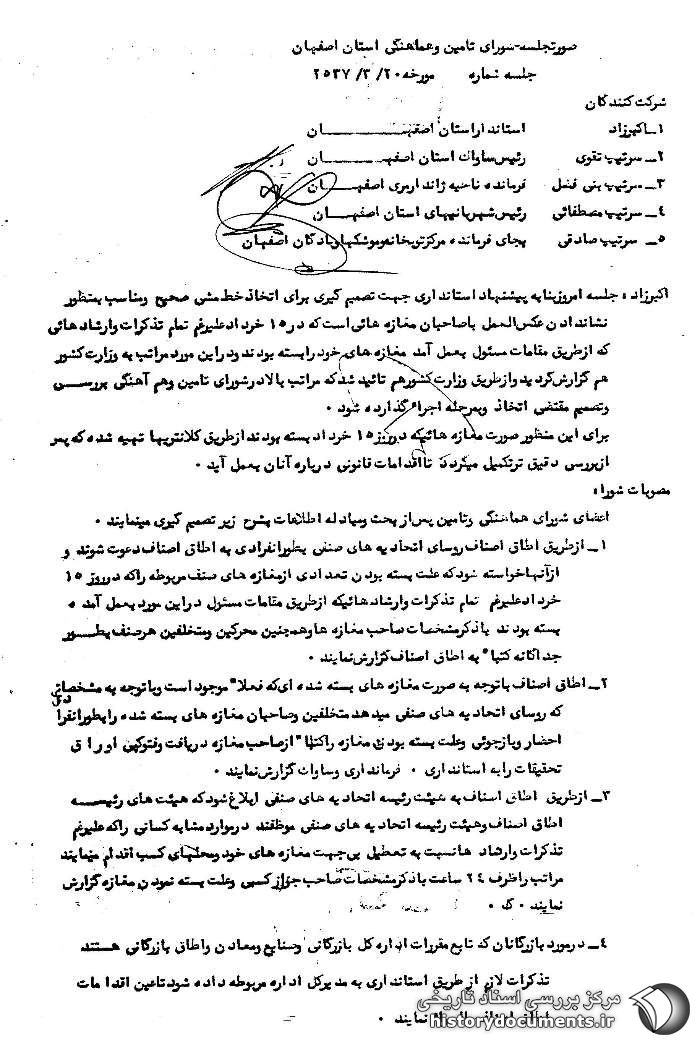 صورتجلسه-شورای تامین وهماهنگی استان اصفهان
جلسه شماره مورخه ۲۰/ ۳/ ۲۵۳۷
شرکت کنندگان
۱ـ اکبرزاد استاندار استان اصفهـــــــــان
۲ـ سرتیپ تقوی رئیس ساواک استان اصفهـــــان
۳ـ سرتیپ بنی فضل فرمانده ناحیه ژاندارمری اصفهـــــان
۴ـ سرتیپ مصطفائی رئیس شهربانیهای استان اصفهـــان
۵ـ سرتیپ صادقی بجای فرمانده مرکزتوپخانه وموشکهای پادگان اصفهان
اکبرزاد : جلسه امروزبنابه پیشنهاد استانداری جهت تصمیم گیری برای اتخاذ خط مشی صحیح ومناسب بمنظور
نشاندادن عکس العمل باصاحبان مغازه هائی است که در ۱۵ خرداد علیرغم تمام تذکرات وارشادهائی
که ازطریق مقامات مسئول بعمل آمد مغازه های خود رابسته بودند ودراین مورد مراتب به وزارت کشور
هم گزارش گردید وازطریق وزارت کشورهم تائید شد که مراتب بالا درشورای تامین وهم آهنگی بررســی
وتصمیم مقتضی اتخاذ وبمرحله اجراء گذارده شود ۰
برای این منظور صورت مغازه هائیکه درروز ۱۵ خرداد بسته بودند ازطریق کلانتریها تهیه شده که پس
ازبررسی دقیق ترتکمیل میگردد تا اقدامات قانونی درباره آنان بعمل آید ۰
مصوبات شورا:
اعضای شورای هماهنگی وتامین پس از بحث ومبادله اطلاعات بشرح زیر تصمیم گیری مینمایند ۰
۱ـ ازطریق اطاق اصناف روسای اتحادیه های صنفی بطورانفرادی به اطاق اصناف دعوت شوند و
ازآنها خواسته شود که علت بسته بودن تعدادی ازمغازه های صنف مربوطه راکه درروز ۱۵
خرداد علیرغم تمام تذکرات وارشادهائیکه ازطریق مقامات مسئول دراین مورد بعمل آمده
بسته بودند باذکرمشخصات صاحب مغازه ها وهمچنین محرکین ومتخلفین هرصنف بطـــور
جداگانه کتبا" به اطاق اصناف گزارش نمایند ۰
۲ـ اطاق اصناف باتوجه به صورت مغازه های بسته شده ای که فعلا" موجود است وباتوجه به مشخصاتی
که روسای اتحادیه های صنفی میدهد متخلفین وصاحبان مغازه های بسته شده رابطورانفرادی
احضار وبازجوئی وعلت بسته بودن مغازه راکتبا" ازصاحب مغازه دریافت وفتوکپی اوراق
تحقیقات رابه استانداری ۰ فرمانداری وساواک گزارش نمایند ۰
۳ـ ازطریق اطاق اصناف به هیئت رئیسه اتحادیه های صنفی ابلاغ شود که هیئت های رئیـــسه
اطاق اصناف وهیئت رئیسه اتحادیه های صنفی موظفند درموارد مشابه کسانی راکه علیرغم
تذکرات وارشاد هانسبت به تعطیل بی جهت مغازه های خود ومحلهای کسب اقدام مینمایند
مراتب راظرف ۲۴ ساعت باذکرمشخصات صاحب جوازکسبی وعلت بسته نمودن مغازه گزارش
نمایند ۰
۴ـ درمورد بازرگانان که تابع مقررات اداره کل بازرگانی وصنایع ومعادن واطاق بازرگانی هستند
تذکرات لازم از طریق استانداری به مدیرکل اداره مربوطه داده شود تاعین اقدامات
نمایند ۰
مرکز بررسی اسناد تاریخی
historydocuments.ir